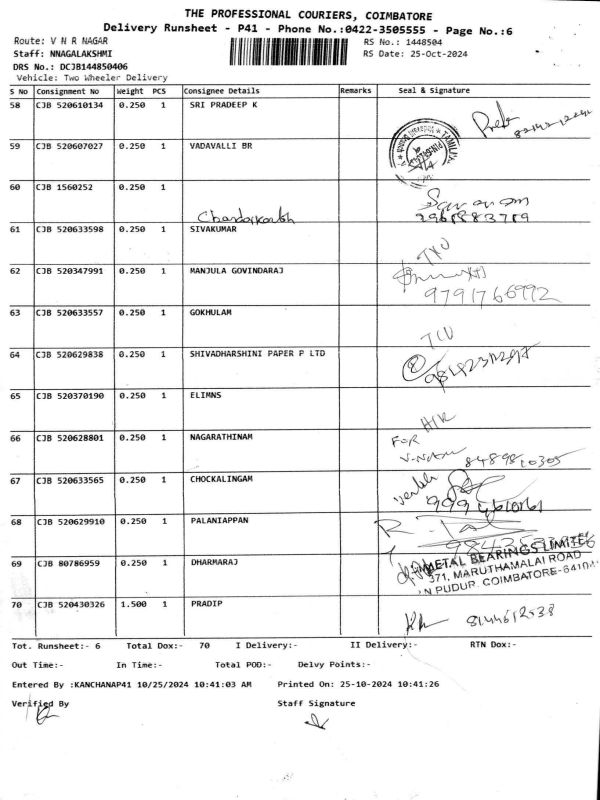 THE PROFESSIONAL COURIERS, COIMBATORE
Delivery Runsheet - P41 - Phone No.:0422-3505555 - Page No.:6
Route: V N R NAGAR RS No.: 1448504
Staff: NNAGALAKSHMI RS Date: 25-Oct-2024
DRS No.: DCJB144850406
Vehicle: Two Wheeler Delivery
S No Consignment No Weight PCS Consignee Details Remarks Seal & Signature
58 CJB 520610134 0.250 1 SRI PRADEEP K
59 CJB 520607027 0.250 1 VADAVALLI BR
60 CJB 1560252 0.250 1
61 CJB 520633598 0.250 1 SIVAKUMAR
62 CJB 520347991 0.250 1 MANJULA GOVINDARAJ
9791766992
63 CJB 520633557 0.250 1 GOKHULAM
64 CJB 520629838 0.250 1 SHIVADHARSHINI PAPER P LTD
65 CJB 520370190 0.250 1 ELIMNS
66 CJB 520628801 0.250 1 NAGARATHINAM FOR
67 CJB 520633565 0.250 1 CHOCKALINGAM
68 CJB 520629910 0.250 1 PALANIAPPAN
69 CJB 80786959 0.250 1 DHARMARAJ
METAL BEARINGS LIMITED
371, MARUTHAMALAI ROAD
N PUDUR, COIMBATORE-641041
70 CJB 520430326 1.500 1 PRADIP
Tot. Runsheet:- 6 Total Dox:- 70 I Delivery:- II Delivery:- RTN Dox:-
Out Time:- In Time:- Total POD:- Delvy Points:-
Entered By :KANCHANAP41 10/25/2024 10:41:03 AM Printed On: 25-10-2024 10:41:26
Verified By Staff Signature